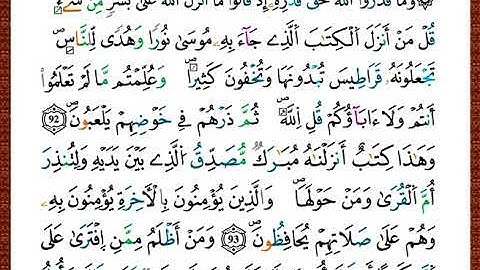 وَمَا قَدَرُوا اللَّهَ حَقَّ قَدْرِهِ إِذْ قَالُوا مَا أَنزَلَ اللَّهُ عَلَىٰ بَشَرٍ مِّن شَيْءٍ
قُلْ مَنْ أَنزَلَ الْكِتَٰبَ الَّذِي جَآءَ بِهِ مُوسَىٰ نُورًا وَهُدًى لِّلنَّاسِ
تَجْعَلُونَهُ قَرَاطِيسَ تُبْدُونَهَا وَتُخْفُونَ كَثِيرًا وَعُلِّمْتُم مَّا لَمْ تَعْلَمُوا
أَنتُمْ وَلَا ءَابَآؤُكُمْ قُلِ اللَّهُ ثُمَّ ذَرْهُمْ فِي خَوْضِهِمْ يَلْعَبُونَ 92
وَهَٰذَا كِتَٰبٌ أَنزَلْنَٰهُ مُبَٰرَكٌ مُّصَدِّقُ الَّذِي بَيْنَ يَدَيْهِ وَلِتُنذِرَ
أُمَّ الْقُرَىٰ وَمَنْ حَوْلَهَا وَالَّذِينَ يُؤْمِنُونَ بِالْأَخِرَةِ يُؤْمِنُونَ بِهِ
وَهُمْ عَلَىٰ صَلَاتِهِمْ يُحَافِظُونَ 93 وَمَنْ أَظْلَمُ مِمَّنِ افْتَرَىٰ عَلَى